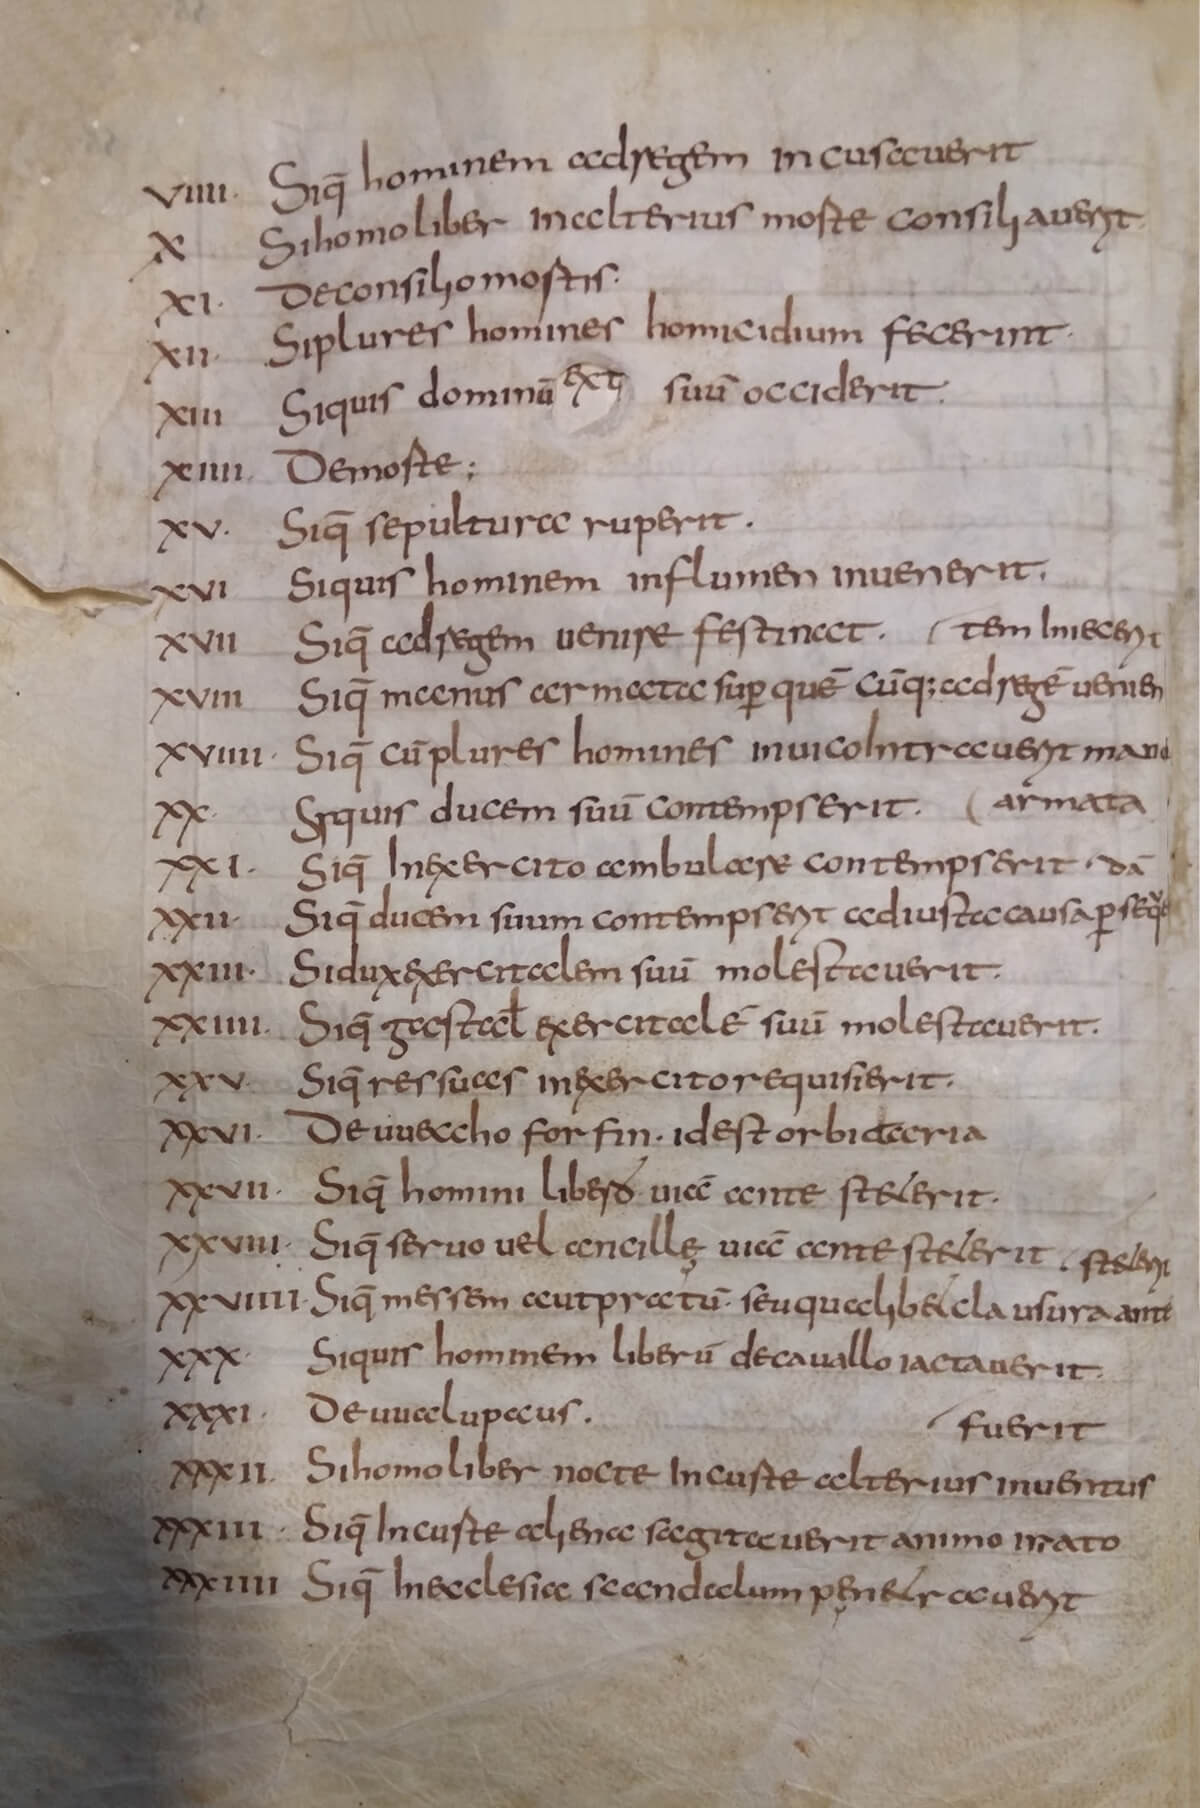 VIIII. Siq̄ hominem adregem incusauerit
X Sihomoliber inalterius morte consiliauerit.
XI. Deconsiliomortis.
XII. Siplures homines homicidium fecerint.
XIII Siquis dominū suū occiderit.
XIIII. Demorte;
XV. Siq̄ sepultura ruperit.
XVI Siquis hominem influmen inuenerit.
XVII Siq̄ adregem uenire festinat. (tem Iniecerit
XVIII Siq̄ manus armata sup̱ quē cūq;adregē uenien
XVIIII. Siq̄ cūplures homines inuicoIntrauerit manu
XX. Siquis ducem suū contempserit. (armata
XXI. Siq̄ Inexercito ambulare contempserit. dā
XXII. Siq̄ ducem suum contempserit adiusta causa ꝑseq̄
XXIII. Sidux exercitalem suū molestauerit.
XXIIII. Siq̄ gastald exercitalē suū molestauerit.
XXV. Siq̄ res suas inexercito requisierit.
XXVI. Deuuecho for fin. idest orbitaria
XXVII. Siq̄ homini libero uiā ante steterit.
XXVIII. Siq̄ seruo uel ancillę uiā ante steterit. steterit
XXVIIII. Siq̄ messem aut pratū. seu quaelibet clausura ante
XXX. Siquis hominem liberū decauallo iactauerit.
XXXI. Deuualupaus. fuerit
XXXII. Sihomoliber nocte Incurte alterius inuentus
XXXIII. Siq̄ Incurte aliena sagitauerit animo irato
XXXIIII Siq̄ Inecclesia scandalum penetrauerit